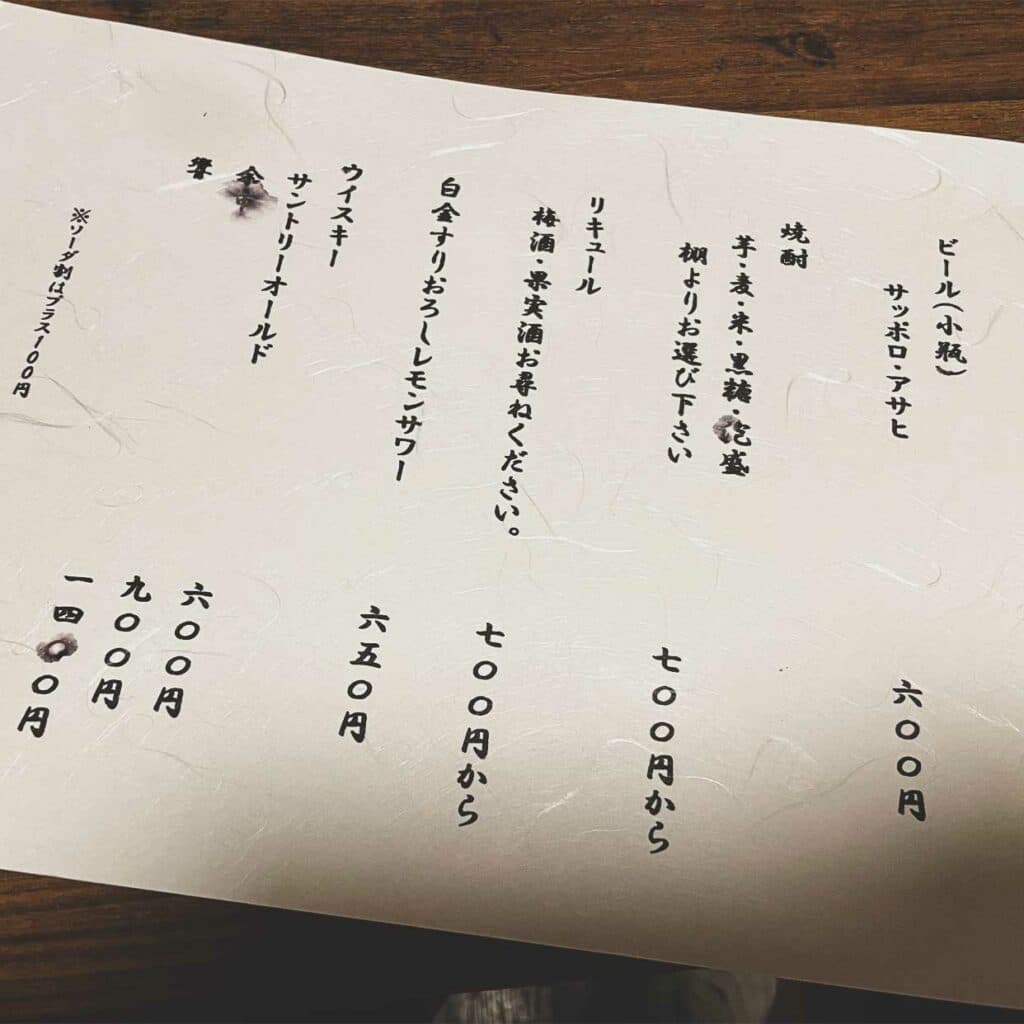 ビール(小瓶)
サッポロ・アサヒ
六〇〇円
焼酎
芋・麦・米・黒糖・泡盛
棚よりお選び下さい
七〇〇円から
リキュール
梅酒・果実酒お尋ねください。
七〇〇円から
白金すりおろしレモンサワー
六五〇円
ウイスキー
サントリーオールド
六〇〇円
九〇〇円
響
一四〇〇円
※ソーダ割はプラス100円